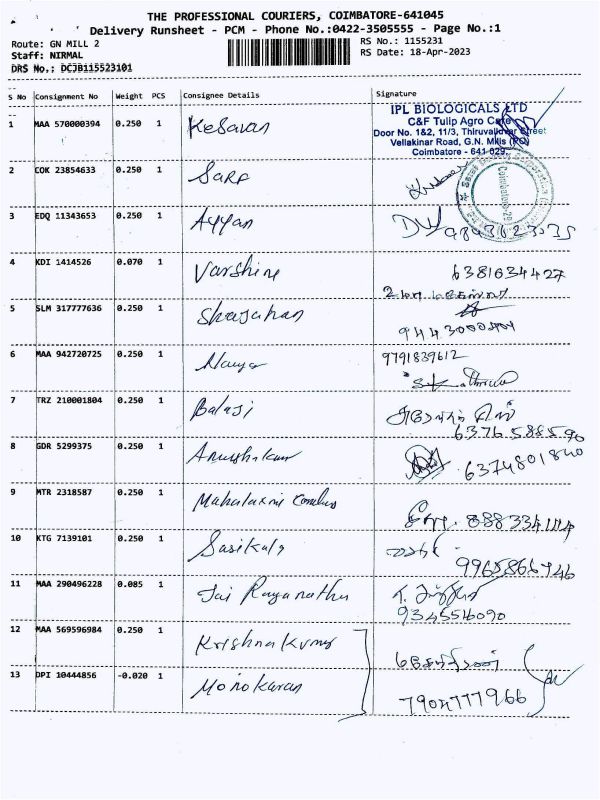 THE PROFESSIONAL COURIERS, COIMBATORE-641045
Delivery Runsheet - PCM - Phone No.:0422-3505555 - Page No.:1
Route: GN MILL 2
RS No.: 1155231
Staff: NIRMAL
RS Date: 18-Apr-2023
DRS No.: DCJB115523101
S No Consignment No Weight PCS Consignee Details Signature
IPL BIOLOGICALS LTD
C&F Tulip Agro Care
Door No. 1&2, 11/3, Thiruvalluvar Street
Vellakinar Road, G.N. Mills (PO)
Coimbatore - 641 029.
1 MAA 570000394 0.250 1 Kesavan
2 COK 23854633 0.250 1
3 EDQ 11343653 0.250 1 Ayyan
4 KDI 1414526 0.070 1 Varshine 6381634427
5 SLM 317777636 0.250 1 Shajahan
6 MAA 942720725 0.250 1 9791839612
7 TRZ 210001804 0.250 1 Balaji
6376588590
8 GDR 5299375 0.250 1 6374801840
9 MTR 2318587 0.250 1 Mahalaxmi
10 KTG 7139101 0.250 1 Sasikala
9965866946
11 MAA 290496228 0.085 1 Jai
9345516090
12 MAA 569596984 0.250 1 Krishnakumar
13 DPI 10444856 -0.020 1 Monokaran
7904777966